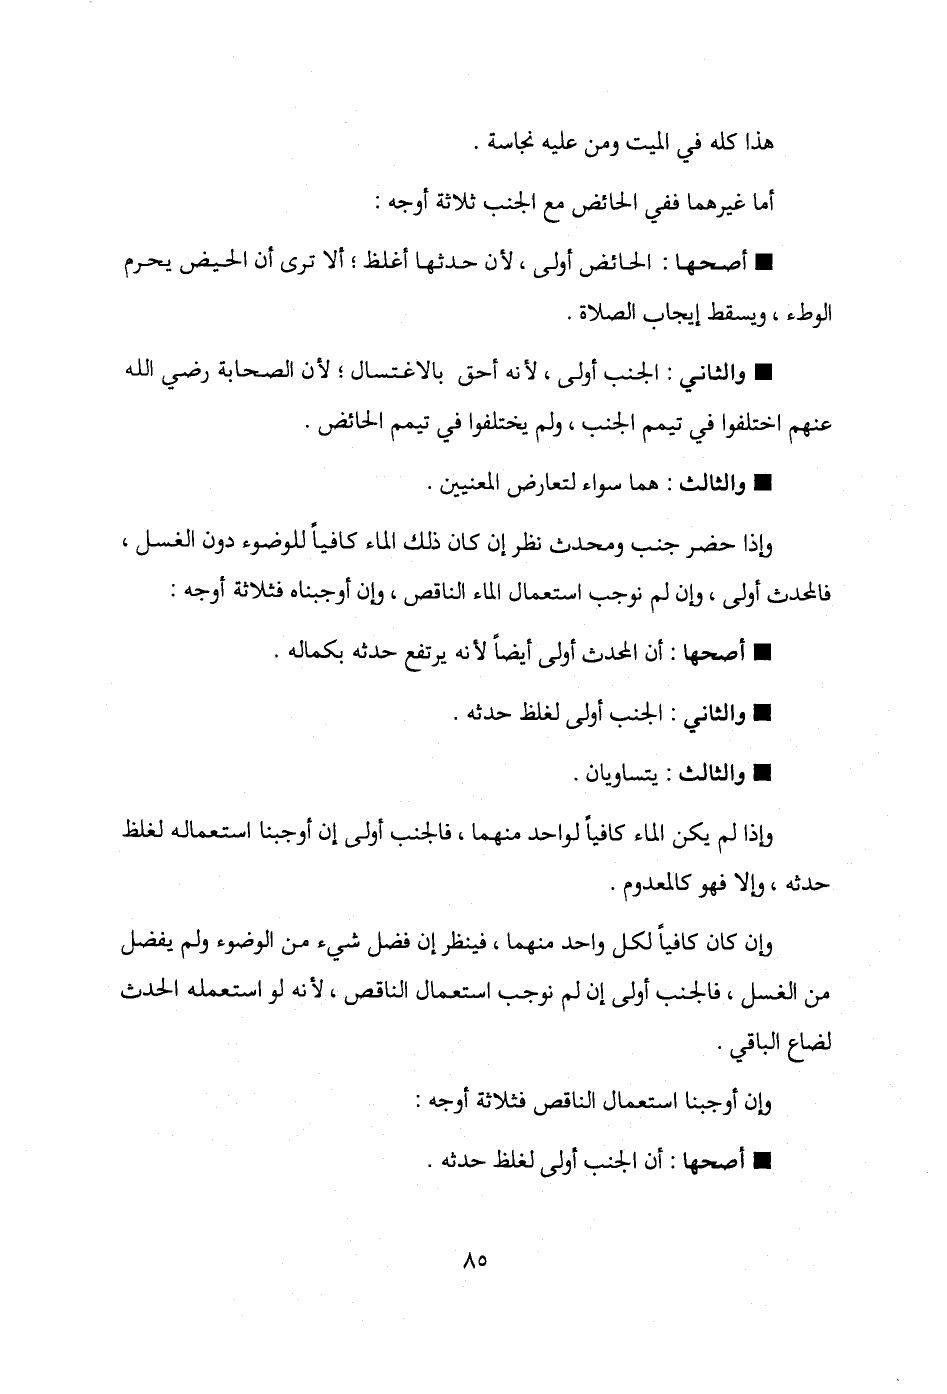 هذا كله في الميت ومن عليه نجاسة .
أما غيرهما ففي الحائض مع الجنب ثلاثة أوجه :
■ أصحها : الحائض أولى ، لأن حدثها أغلظ ؛ ألا ترى أن الحيض يحرم
الوطء ، ويسقط إيجاب الصلاة .
■ والثاني : الجنب أولى ، لأنه أحق بالاغتسال ؛ لأن الصحابة رضي الله
عنهم اختلفوا في تيمم الجنب ، ولم يختلفوا في تيمم الحائض .
■ والثالث : هما سواء لتعارض المعنيين .
وإذا حضر جنب ومحدث نظر إن كان ذلك الماء كافياً للوضوء دون الغسل ،
فالمحدث أولى ، وإن لم نوجب استعمال الماء الناقص ، وإن أوجبناه فثلاثة أوجه :
■ أصحها : أن المحدث أولى أيضاً لأنه يرتفع حدثه بكماله .
■ والثاني : الجنب أولى لغلظ حدثه .
■ والثالث : يتساويان .
وإذا لم يكن الماء كافياً لواحد منهما ، فالجنب أولى إن أوجبنا استعماله لغلظ
حدثه ، وإلا فهو كالمعدوم .
وإن كان كافياً لكل واحد منهما ، فينظر إن فضل شيء من الوضوء ولم يفضل
من الغسل ، فالجنب أولى إن لم نوجب استعمال الناقص ، لأنه لو استعمله الحدث
لضاع الباقي .
وإن أوجبنا استعمال الناقص فثلاثة أوجه :
■ أصحها : أن الجنب أولى لغلظ حدثه .
٨٥